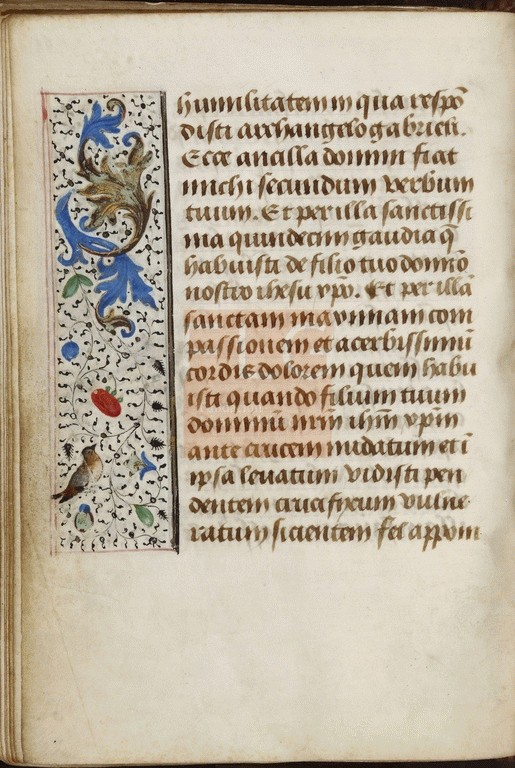 humilitatem in qua respō
disti archangelo gabrieli.
Ecce ancilla domini fiat
michi secundum verbum
tuum. Et per illa sanctissi
ma quindecim gaudia q̄
habuisti de filio tuo domīo
nostro ihesu xpō. Et per illā
sanctam maximam com
passionem et acerbissimū
cordis dolorem quem habu
isti quando filium tuum
dominū nrm̄ ihm̄ xpm̄
ante crucem nudatum et ī
ipsa leuatum vidisti pen
dentem crucifixum vulne
ratum sicientem fel apponi